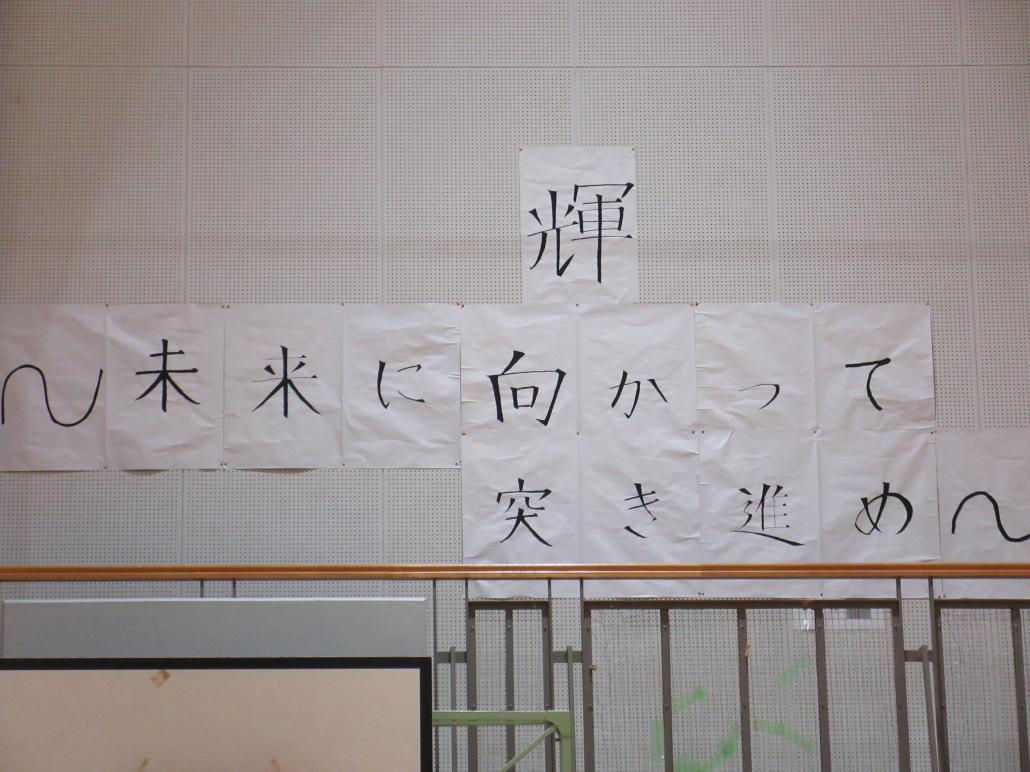 輝
〜未来に向かって
突き進め〜